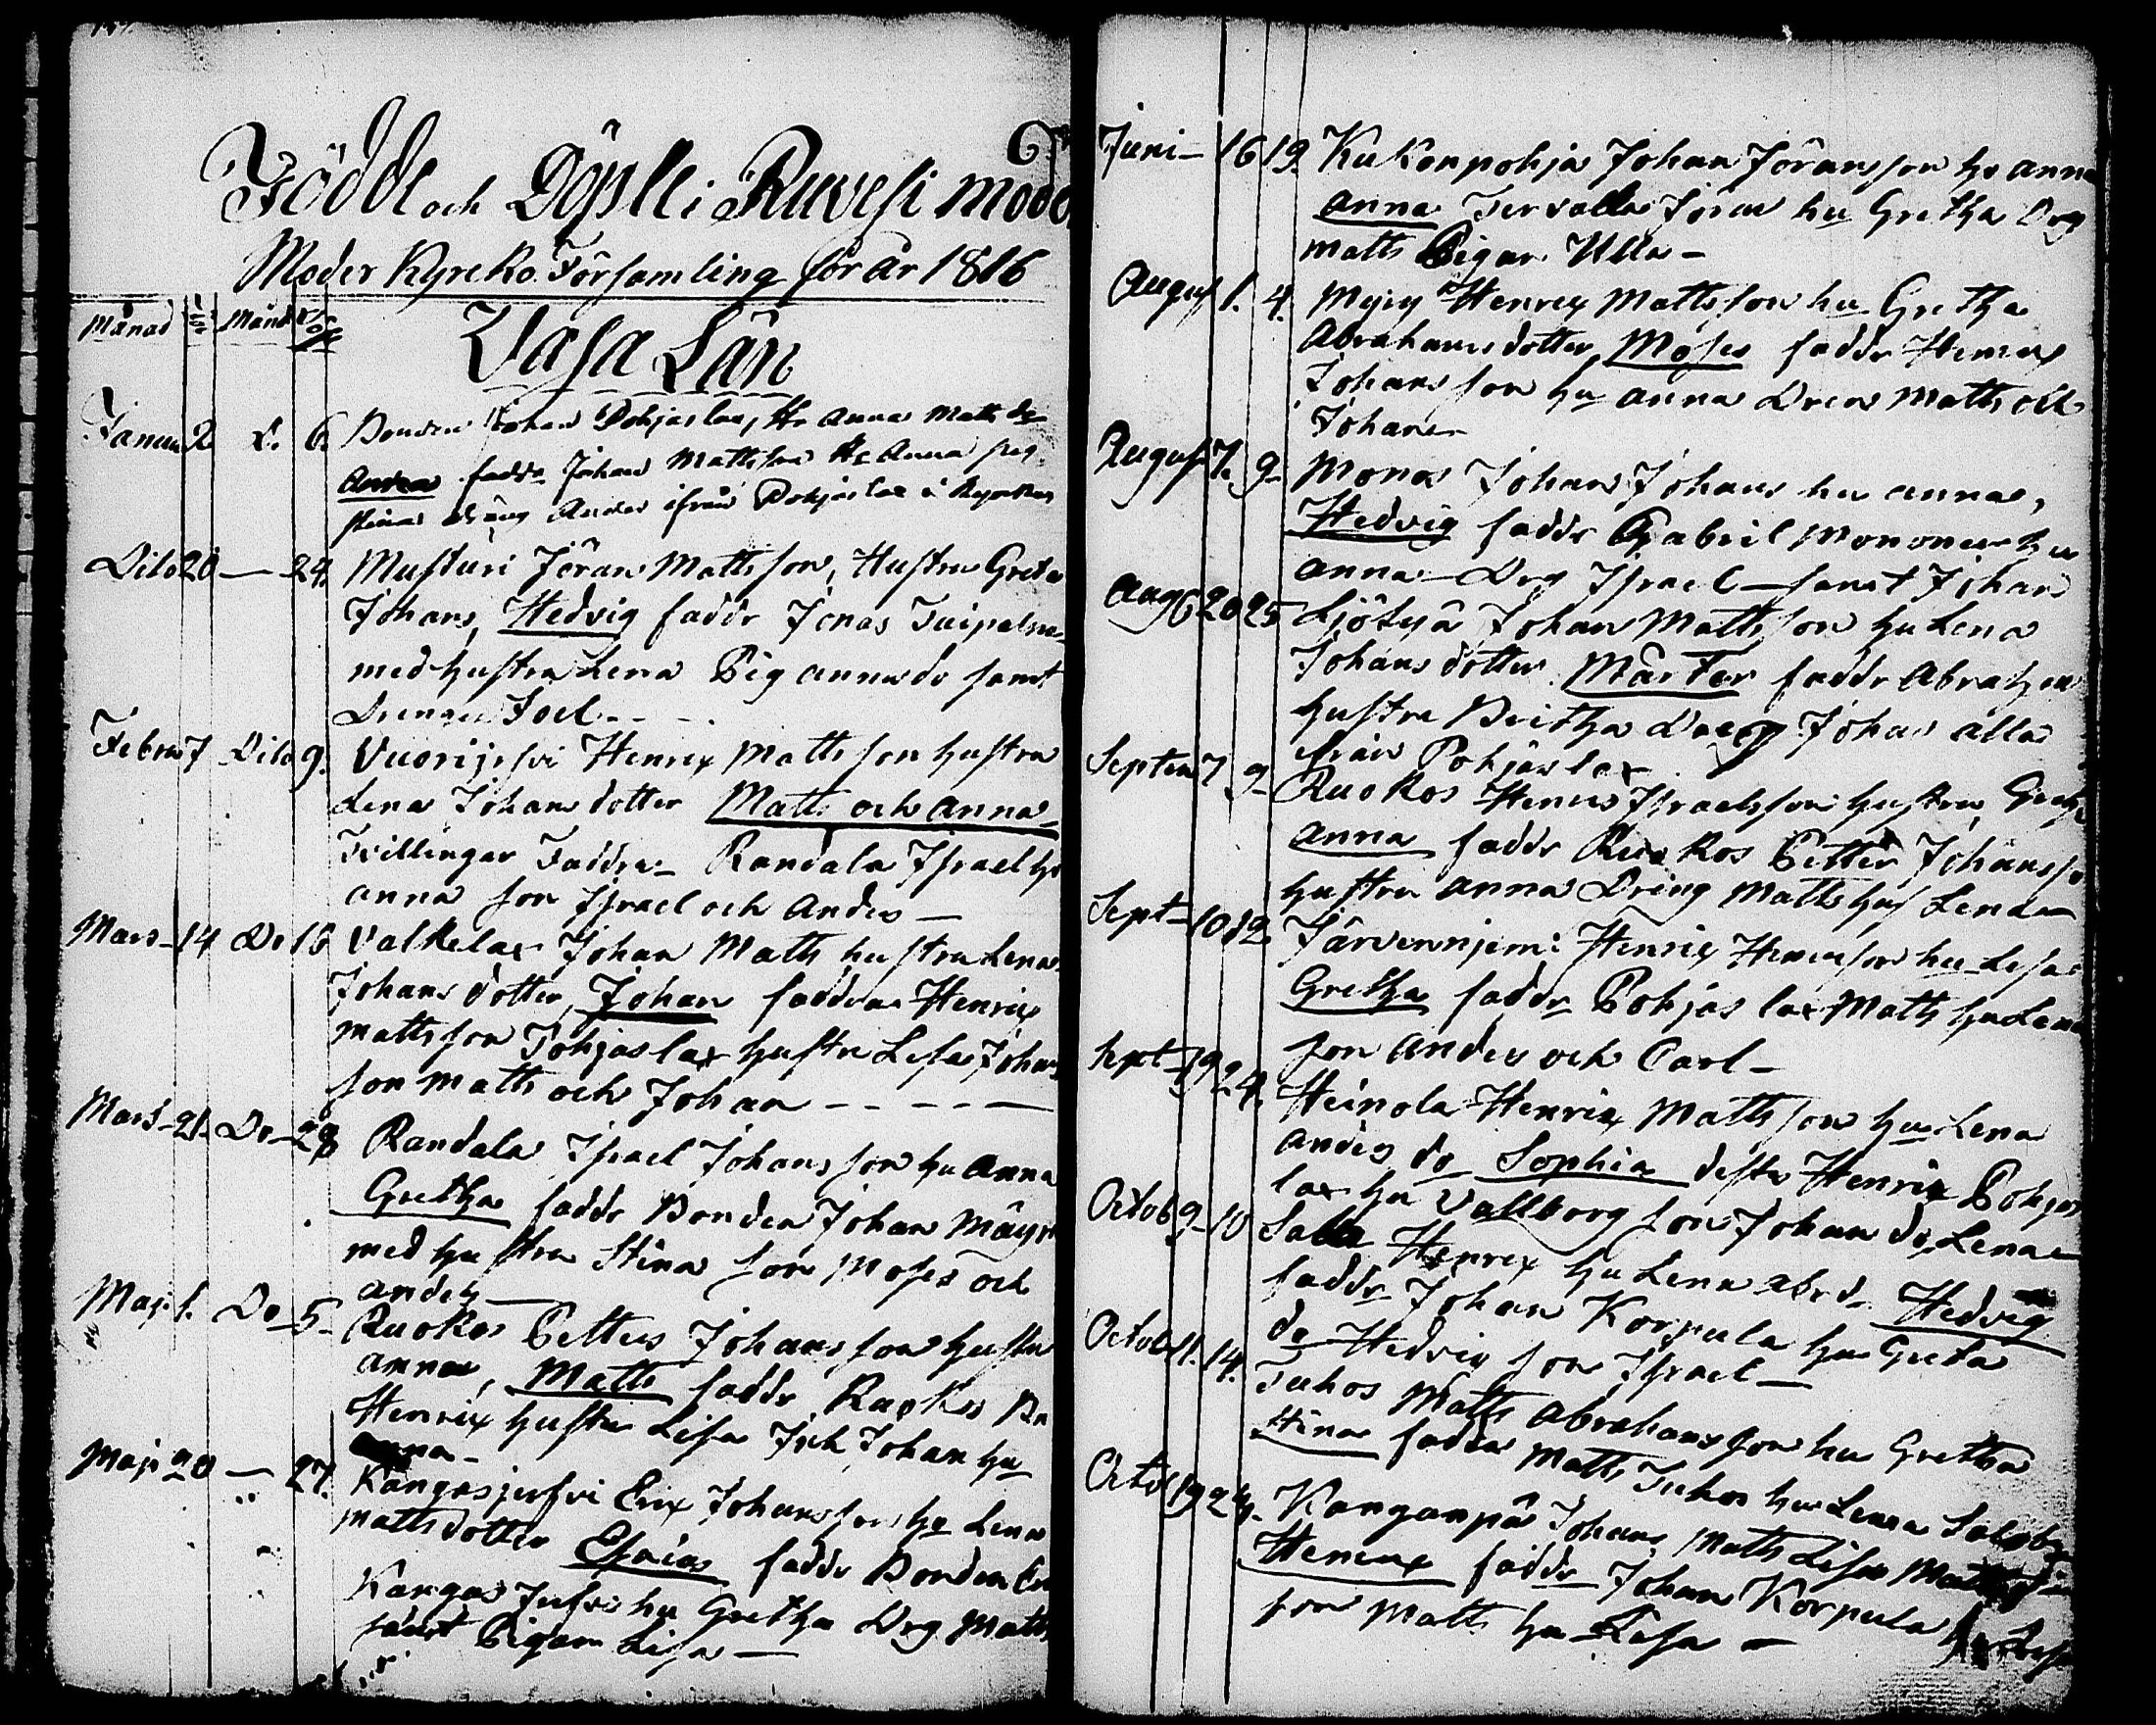 Födde och Döpte i Ruovesi Mod
Moder Kyrko Församling för år 1816
Månad Månd
Vasa Län
Januu 2 D. 6. Bonden Johan Pohjaslax, Hu Anna Matts dr
Anders faddr Johan Mattsson Hu Anna pig
Stina dräng Anders ifrån Pohjaslax i Kyrko
Dito 20 — 24. Mustüri Jöran Mattsson, Hustru Greta
Johans, Hedvig faddr Jonas Tuipal
med hustru Lena Pig anna do samt
Drengen Joel - - - -
Febru 7 Dito 9. Vuorijerfvi Henrix Mattsson hustru
Lena Johans dotter Matts och Anna
Tvillingar Faddra Randala Israel hu
anna son Israel och Anders —
Mars 14 Do 16 Valkelax Johan Matts hustru Lena
Johans dotter, Johan faddra Henrix
Mattsson Pohjaslax hustru Lisa Johans
son Matts och Johan - - - - —
Mars 21. Do 28 Randala Israel Johansson hu Anna
Gretha faddr Bonden Johan Mäyrä
med hustru Stina son Moses och
anders —
Maj 1. Do 5. Ruokos Petter Johansson hustru
anna, Matts faddr Ruokos Bn
Henrix hustru Lisa Joh Johan hu
anna —
Maj 20 — 27. Kangasjerfvi Erix Johansson hu Lena
Mattsdotter Esaias faddr Bonden Er
Kangas Jerfvi hu Gretha Drg Matts
samt Pigan Lisa —
Juni 16 19. Kukonpohja Johan Jöransson hu anna
anna Jervalla Jöran hu Gretha Drg
matts Pigan Ulla —
August 1. 4. Mejry Henrix Mattsson hu Gretha
Abrahamsdotter, Moses faddr Henrix
Johansson hu anna Dren Matts och
Johan
August 7. 9. Monos Johan Johans hu anna,
Hedvig faddr Gabriel Mononen hu
anna — Drg Israel samt Johan
Aug 20 25 Sjöskyä Johan Mattsson hu Lena
Johans dotter Mårten faddr Abraham
hustru Britha Dreng Johan alla
från Pohjaslax
Septem 7 9 Ruokos Henric Israelsson hustru Greta
anna faddr Ruokos Petter Johansso
hustru anna Dräng Matts hus Lena
Sept 10 12. Järvenniemi Henrix Henricson hu Lisa
Gretha faddr Pohjaslax Matts hu Lena
son Anders och Carl —
Sept 19 24. Heinola Henrix Mattsson hu Lena
anders do Sophia dess Henrix Pohjas
lax hu Vallborg son Johan do Lena
Octob 9 10 Salla Henrix hu Lena abr d. Hedvig
faddr Johan Korpula hu Greta
do Hedvig son Israel —
Octob 11. 14. Tuhos Matts Abrahansson hu Gretha
Stina faddra Matts Tuhos hu Lena
Octob 19 24. Kanganpä Johans Matts Lisa Matts
Henrix faddr Johan Korpula hu Lisa
son Matts hu Lisa —